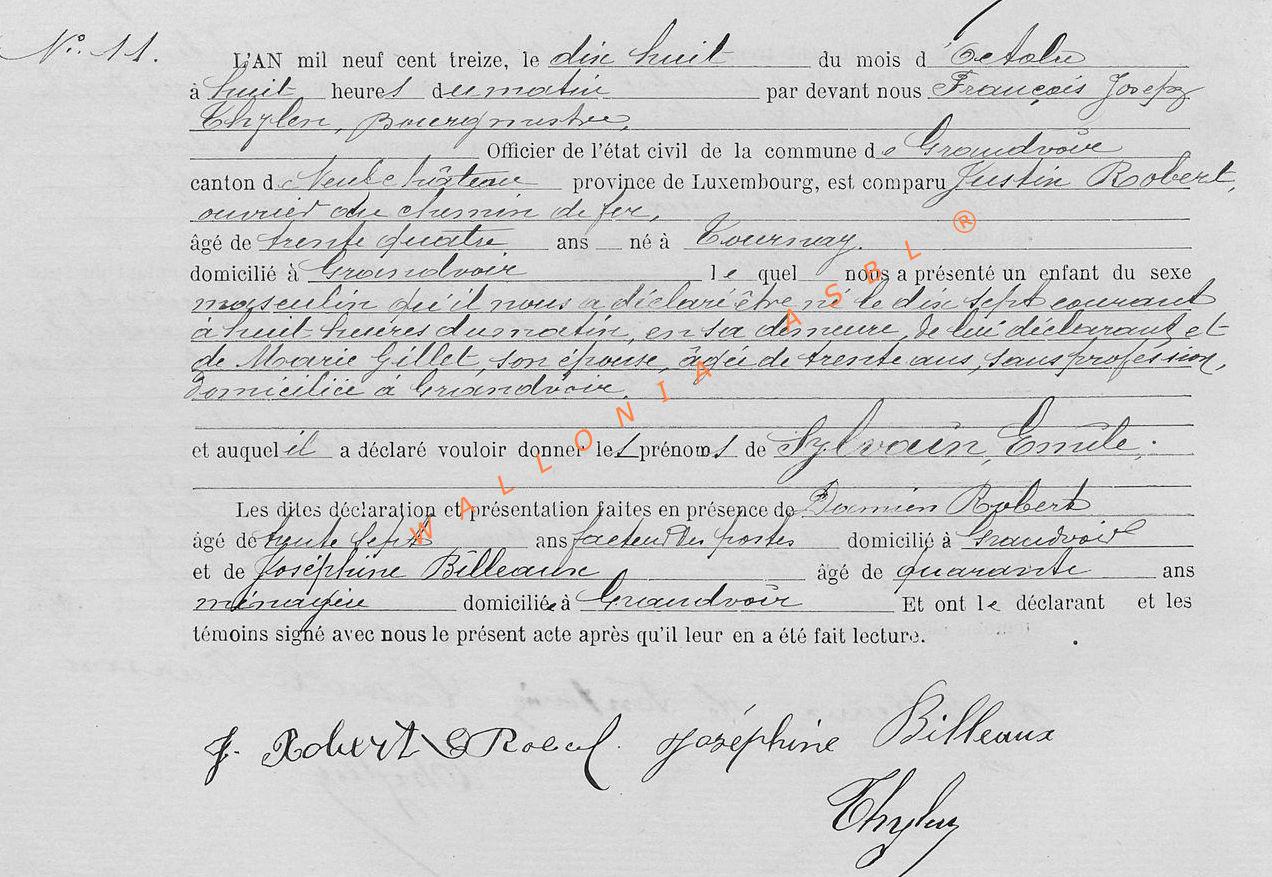 N°. 11.
L'AN mil neuf cent treize, le dix huit du mois d'Octobre
à huit heures du matin par devant nous François Joseph
Thylen, Bourgmestre,
Officier de l'état civil de la commune de Grandvoir
canton de Neufchâteau province de Luxembourg, est comparu Justin Robert,
ouvrier du chemin de fer,
âgé de trente quatre ans né à Tournay.
domicilié à Grandvoir le quel nous a présenté un enfant du sexe
masculin qu'il nous a déclaré être né le dix sept courant
à huit heures du matin, en sa demeure, de lui déclarant et
de Marie Gillet, son épouse, âgée de trente ans, sans profession,
domiciliée à Grandvoir.
et auquel il a déclaré vouloir donner les prénoms de Sylvain, Emile.
Les dites déclaration et présentation faites en présence de Damien Robert
âgé de trente sept ans facteur des postes domicilié à Grandvoir
et de Joséphine Billeaux âgé de quarante ans
ménagère domiciliée à Grandvoir Et ont le déclarant et les
témoins signé avec nous le présent acte après qu'il leur en a été fait lecture.
J. Robert Joséphine Billeaux
Thylen
WALLONIA ASBL ®